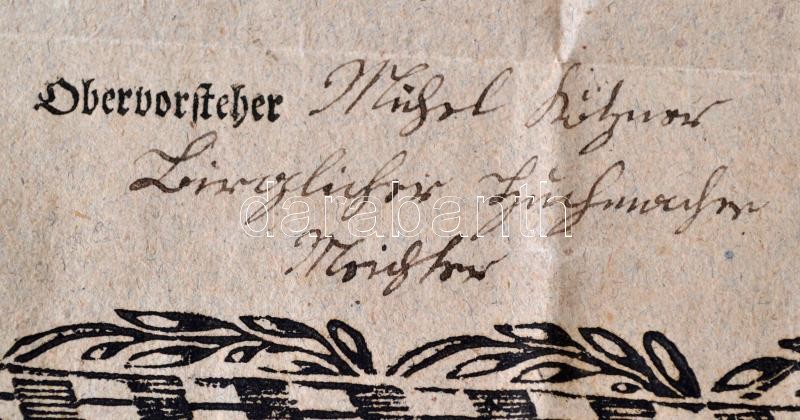 Obervorsteher Michel Kötzner
Birglicher Tuchmacher
Meichster
darabanth